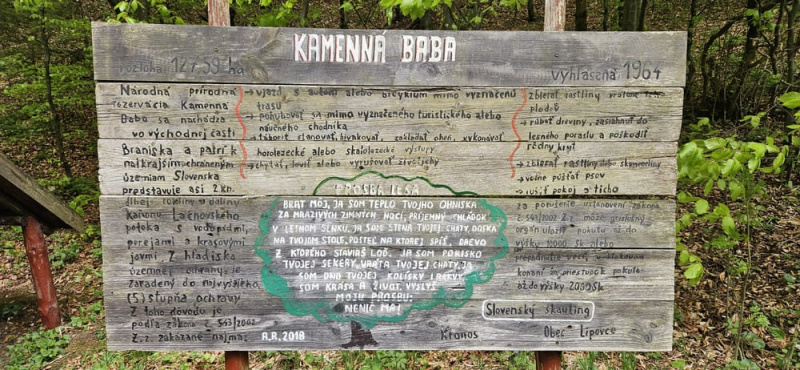 KAMENNÁ BABA
rozloha 127,59 ha
vyhlásená 1964
Národná prírodná
rezervácia Kamenná
Baba sa nachádza
vo východnej časti
Braniska a patrí k
najkrajším chráneným
územiam Slovenska
predstavuje asi 2 km
dlhej rokliny v doline
kaňonu Lačnovského
potoka s vodopádmi,
perejami a krasovými
javmi. Z hľadiska
územnej ochrany je
zaradený do najvyššieho
(5) stupňa ochrany
Z toho dôvodu je
podľa zákona č. 543/2002
Z. z. zakázané najmä:
→ vjazd s autom alebo bicyklom mimo vyznačenú
trasu
→ pohybovať sa mimo vyznačeného turistického alebo
náučného chodníka
táboriť, stanovať, bivakovať, zakladať oheň, vykonávať
horolezecké alebo skalolezecké výstupy
→ chytať, loviť alebo vyrušovať živočíchy
→ zbierať rastliny vrátane ich
plodov
→ rúbať dreviny, zasiahnuť do
lesného porastu a poškodiť
pôdny kryt
→ zbierať rastliny alebo skameneliny
→ voľne púšťať psov
→ rušiť pokoj a ticho
za porušenie ustanovení zákona
č. 543/2002 Z. z. môže príslušný
orgán uložiť pokutu až do
výšky sk alebo
prepadnutie veci, v blokovom
konaní za priestupok pokuta
až do výšky 2000Sk
PROSBA LESA
BRAT MÔJ, JA SOM TEPLO TVOJHO OHNISKA
ZA MRAZIVÝCH ZIMNÝCH NOCÍ, PRÍJEMNÝ CHLÁDOK
V LETNOM SLNKU. JA SOM STENA TVOJEJ CHATY, DOSKA
NA TVOJOM STOLE, POSTEĽ NA KTOREJ SPÍŠ, DREVO
Z KTORÉHO STAVIAŠ LOĎ. JA SOM PORISKO
TVOJEJ SEKERY, VRÁTA TVOJEJ CHATY. JA
SOM DNO TVOJEJ KOLÍSKY I RAKVY.
SOM KRÁSA A ŽIVOT. VYSLYŠ
MOJU PROSBU:
NENIČ MA!
A.R. 2018
Slovenský skauting
Kronos
Obec Lipovce